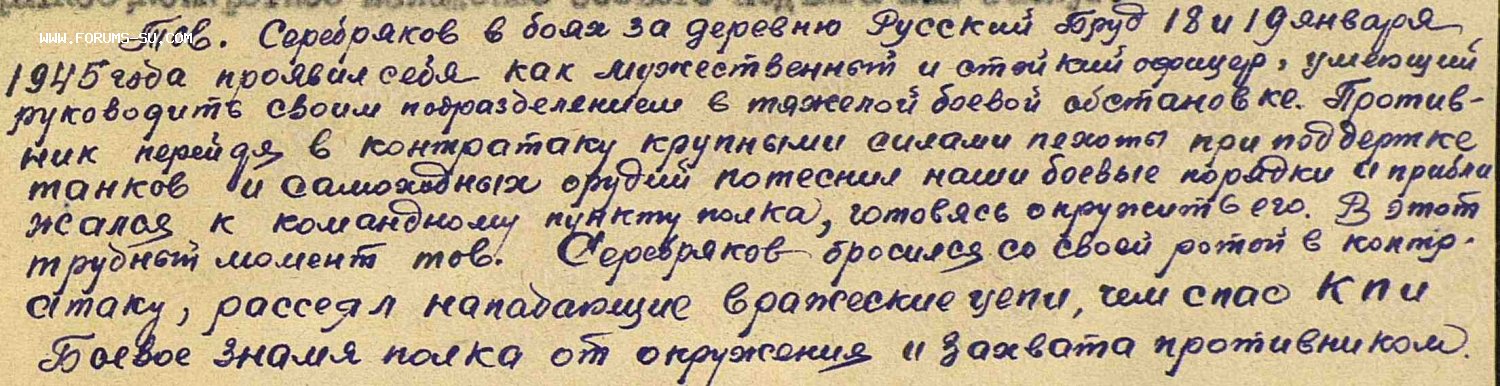 www.forums-su.com
Тов. Серебряков в боях за деревню Русский Бруд 18 и 19 января
1945 года проявил себя как мужественный и стойкий офицер, умеющий
руководить своим подразделением в тяжелой боевой обстановке. Против-
ник перейдя в контратаку крупными силами пехоты при поддержке
танков и самоходных орудий потеснил наши боевые порядки и прибли
жался к командному пункту полка, готовясь окружить его. В этот
трудный момент тов. Серебряков бросился со своей ротой в контр-
атаку, рассеял нападающие вражеские цепи, чем спас КП и
Боевое Знамя полка от окружения и захвата противником.